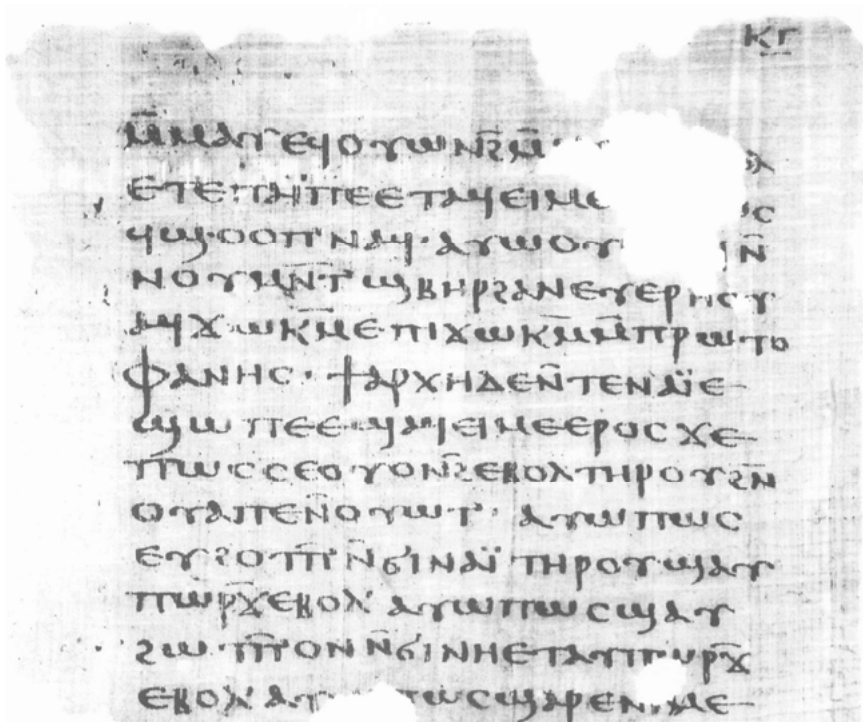 ⲕⲅ
ⲙ̄ⲙⲁⲩⲉϥⲟⲩⲱⲛϩ̄
ⲉⲧⲉⲡⲁⲓ̈ⲡⲉⲉⲧⲁϥⲉⲓⲙⲉ
ϥϣⲟⲟⲡⲛⲁϥ· ⲁⲩⲱⲟⲩ
ⲛⲟⲩⲙⲛ̄ⲧϣⲃⲏⲣϩⲁⲛⲉⲩⲉⲣⲏⲟⲩ
ⲁϥϫⲱⲕⲙ̄ⲉⲡⲓϫⲱⲕⲙ̄ⲙ̄ⲡⲣⲱⲧⲟ
ⲫⲁⲛⲏⲥ· ϯⲁⲣⲭⲏⲇⲉⲛ̄ⲧⲉⲛⲁⲓ̈ⲉ-
ϣⲱⲡⲉⲉϣⲁϥⲉⲓⲙⲉⲉⲣⲟⲥϫⲉ-
ⲡⲱⲥⲥⲉⲟⲩⲟⲛϩ̄ⲉⲃⲟⲗⲧⲏⲣⲟⲩϩⲛ̄
ⲟⲩⲁⲡⲉⲛ̄ⲟⲩⲱⲧ· ⲁⲩⲱⲡⲱⲥ
ⲉⲩϩⲟⲧⲡ̄ⲛ̄ϭⲓⲛⲁⲓ̈ ⲧⲏⲣⲟⲩϣⲁⲩ
ⲡⲱⲣϫ̄ⲉⲃⲟⲗ ⲁⲩⲱⲡⲱⲥϣⲁⲩ
ϩⲱⲧⲡ̄ⲟⲛⲛ̄ϭⲓⲛⲏⲉⲧⲁⲩⲡⲱⲣϫ̄
ⲉⲃⲟⲗ ⲡⲱⲥϣⲁⲣⲉ